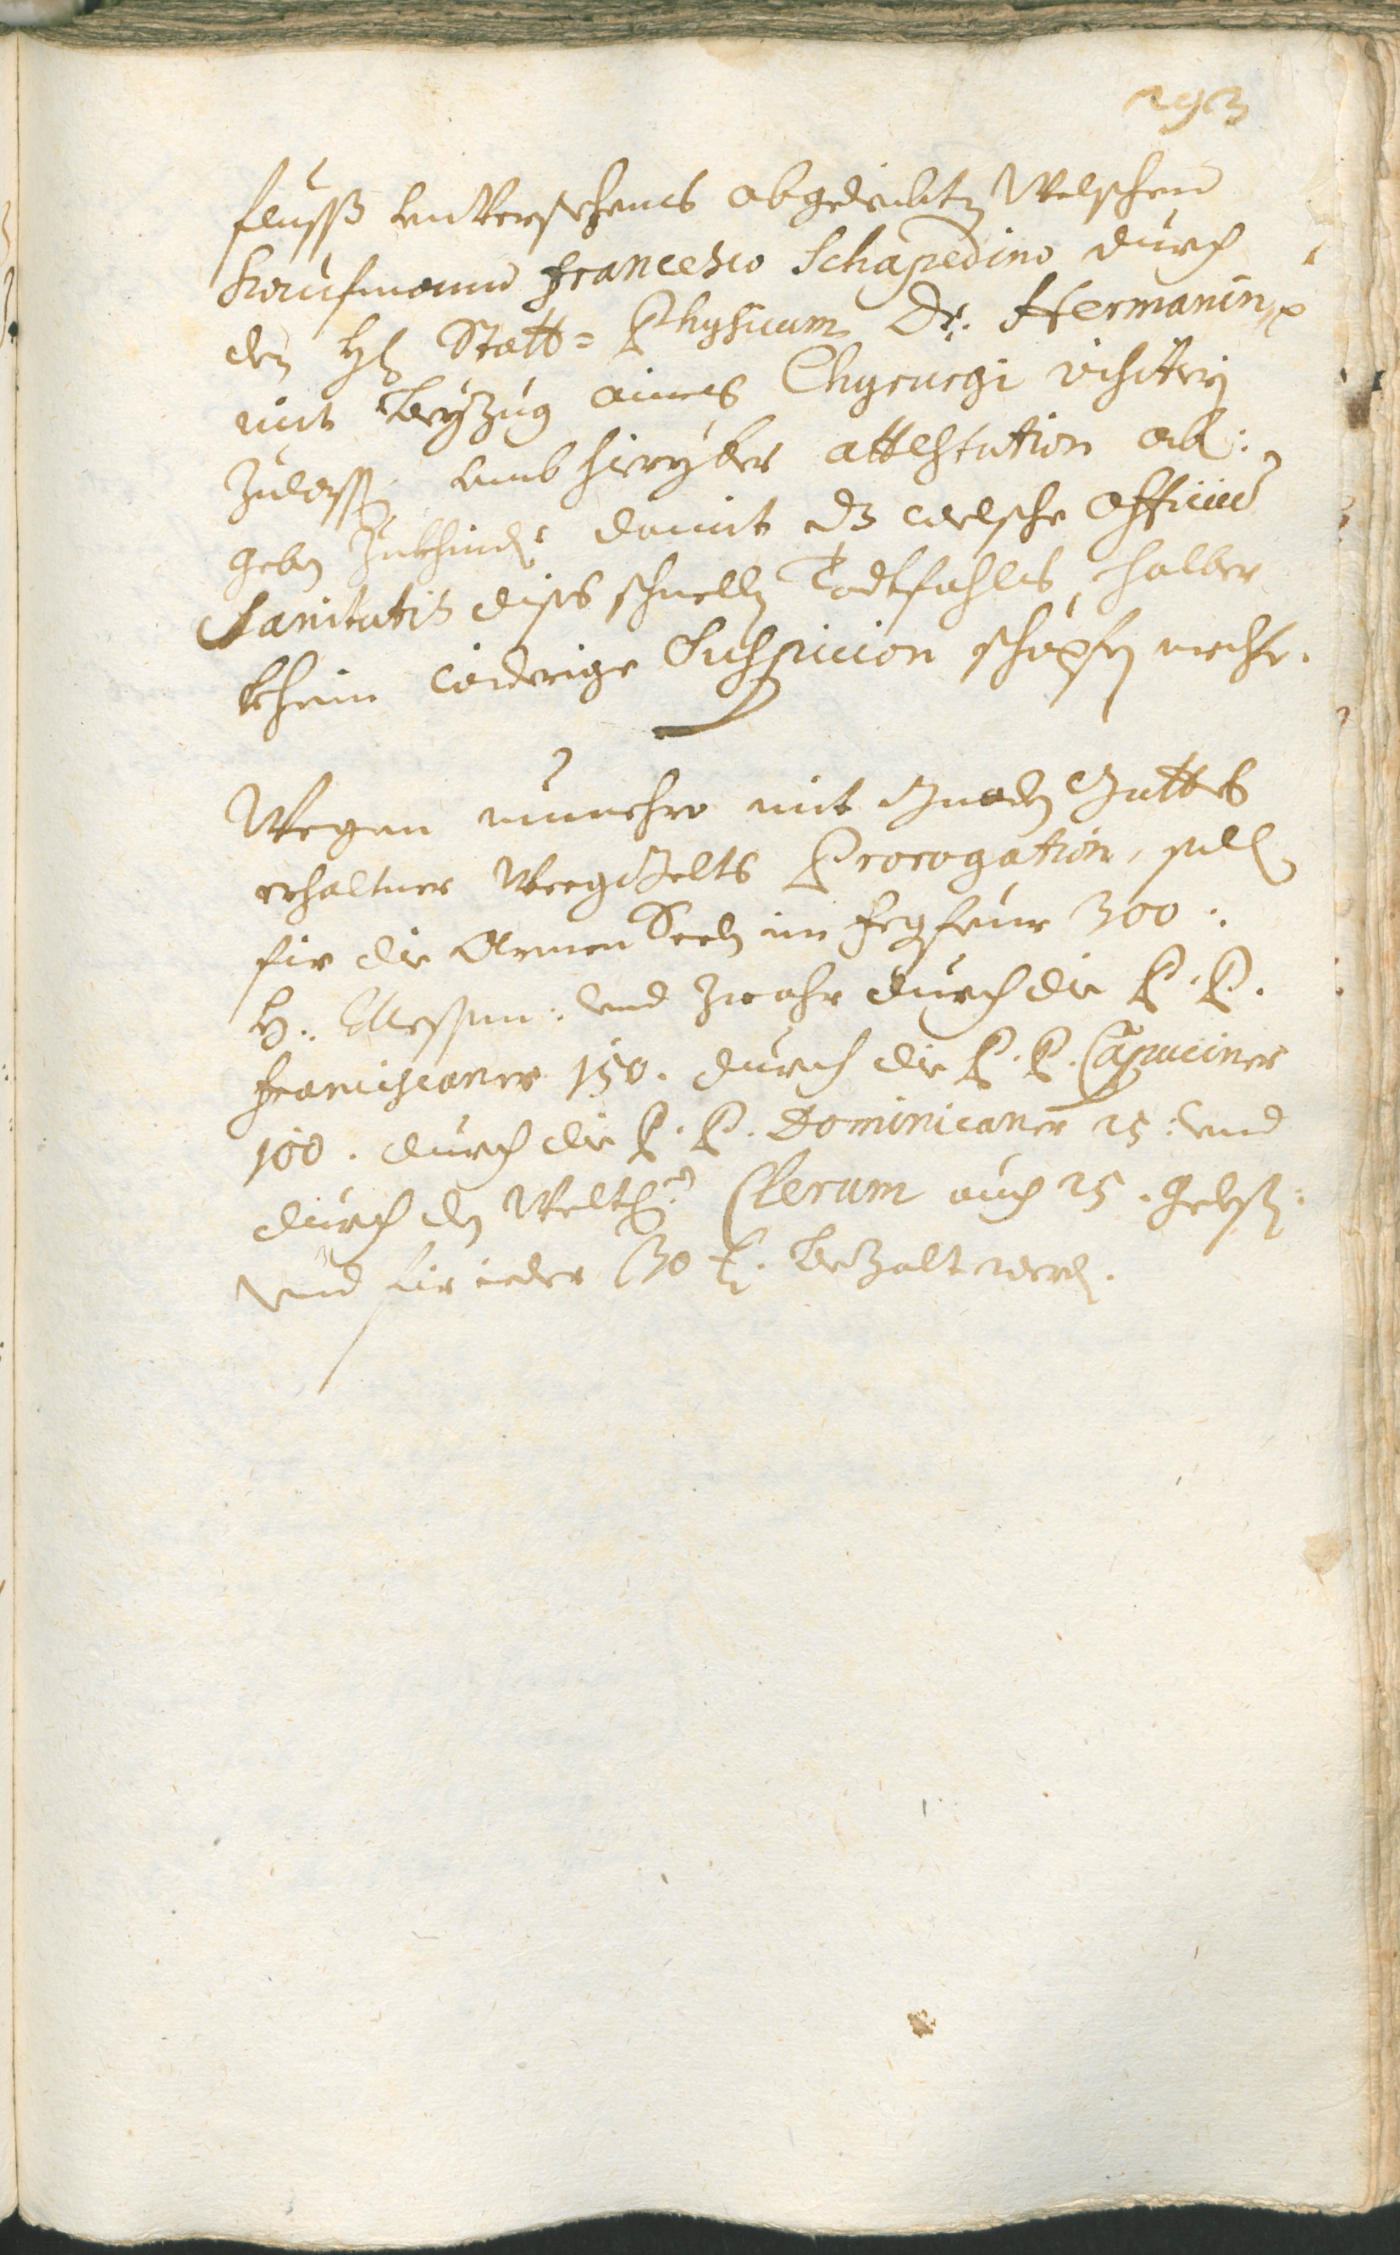 293
fluß unversehens abgeleibten Welschen
Kaufmann Francesco Schapedino durch
den H: Statt= Physicum Dr. Hermanin
mit Beyzug aines Chyrurgi visitirn
zulassen umb hieryber attestation ab:
geben zukhinden damit dz welsche Officium
Sanitatis dises schnellen Todtfahls halber
khein widerige Suspicion schöpfen mechte.
Wegen nunmehro mit Gnaden Gottes
erhaltner Weeg Gelts Prorogation, soll
für die Armen Seelen im Fegfeur 300:
H: Messen: Und zwahr durch die P. P.
Franciscaner 150. durch die P. P. Capuciner
100. durch die P. P. Dominicaner 25: Und
durch den Weltl: Clerum auch 25. gelesen:
Und für ieder 30 k. bezalt werden.